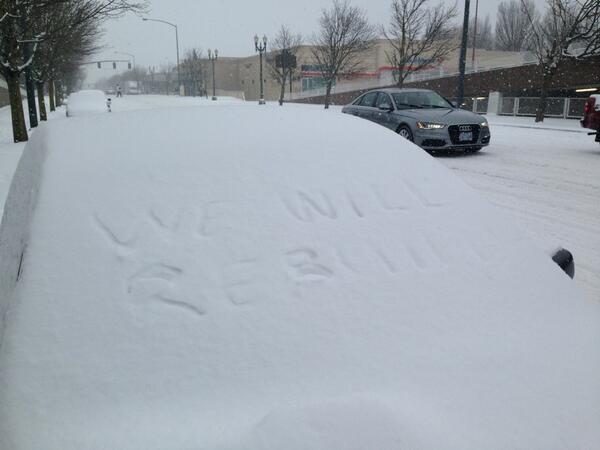 WE WILL
REBUILD